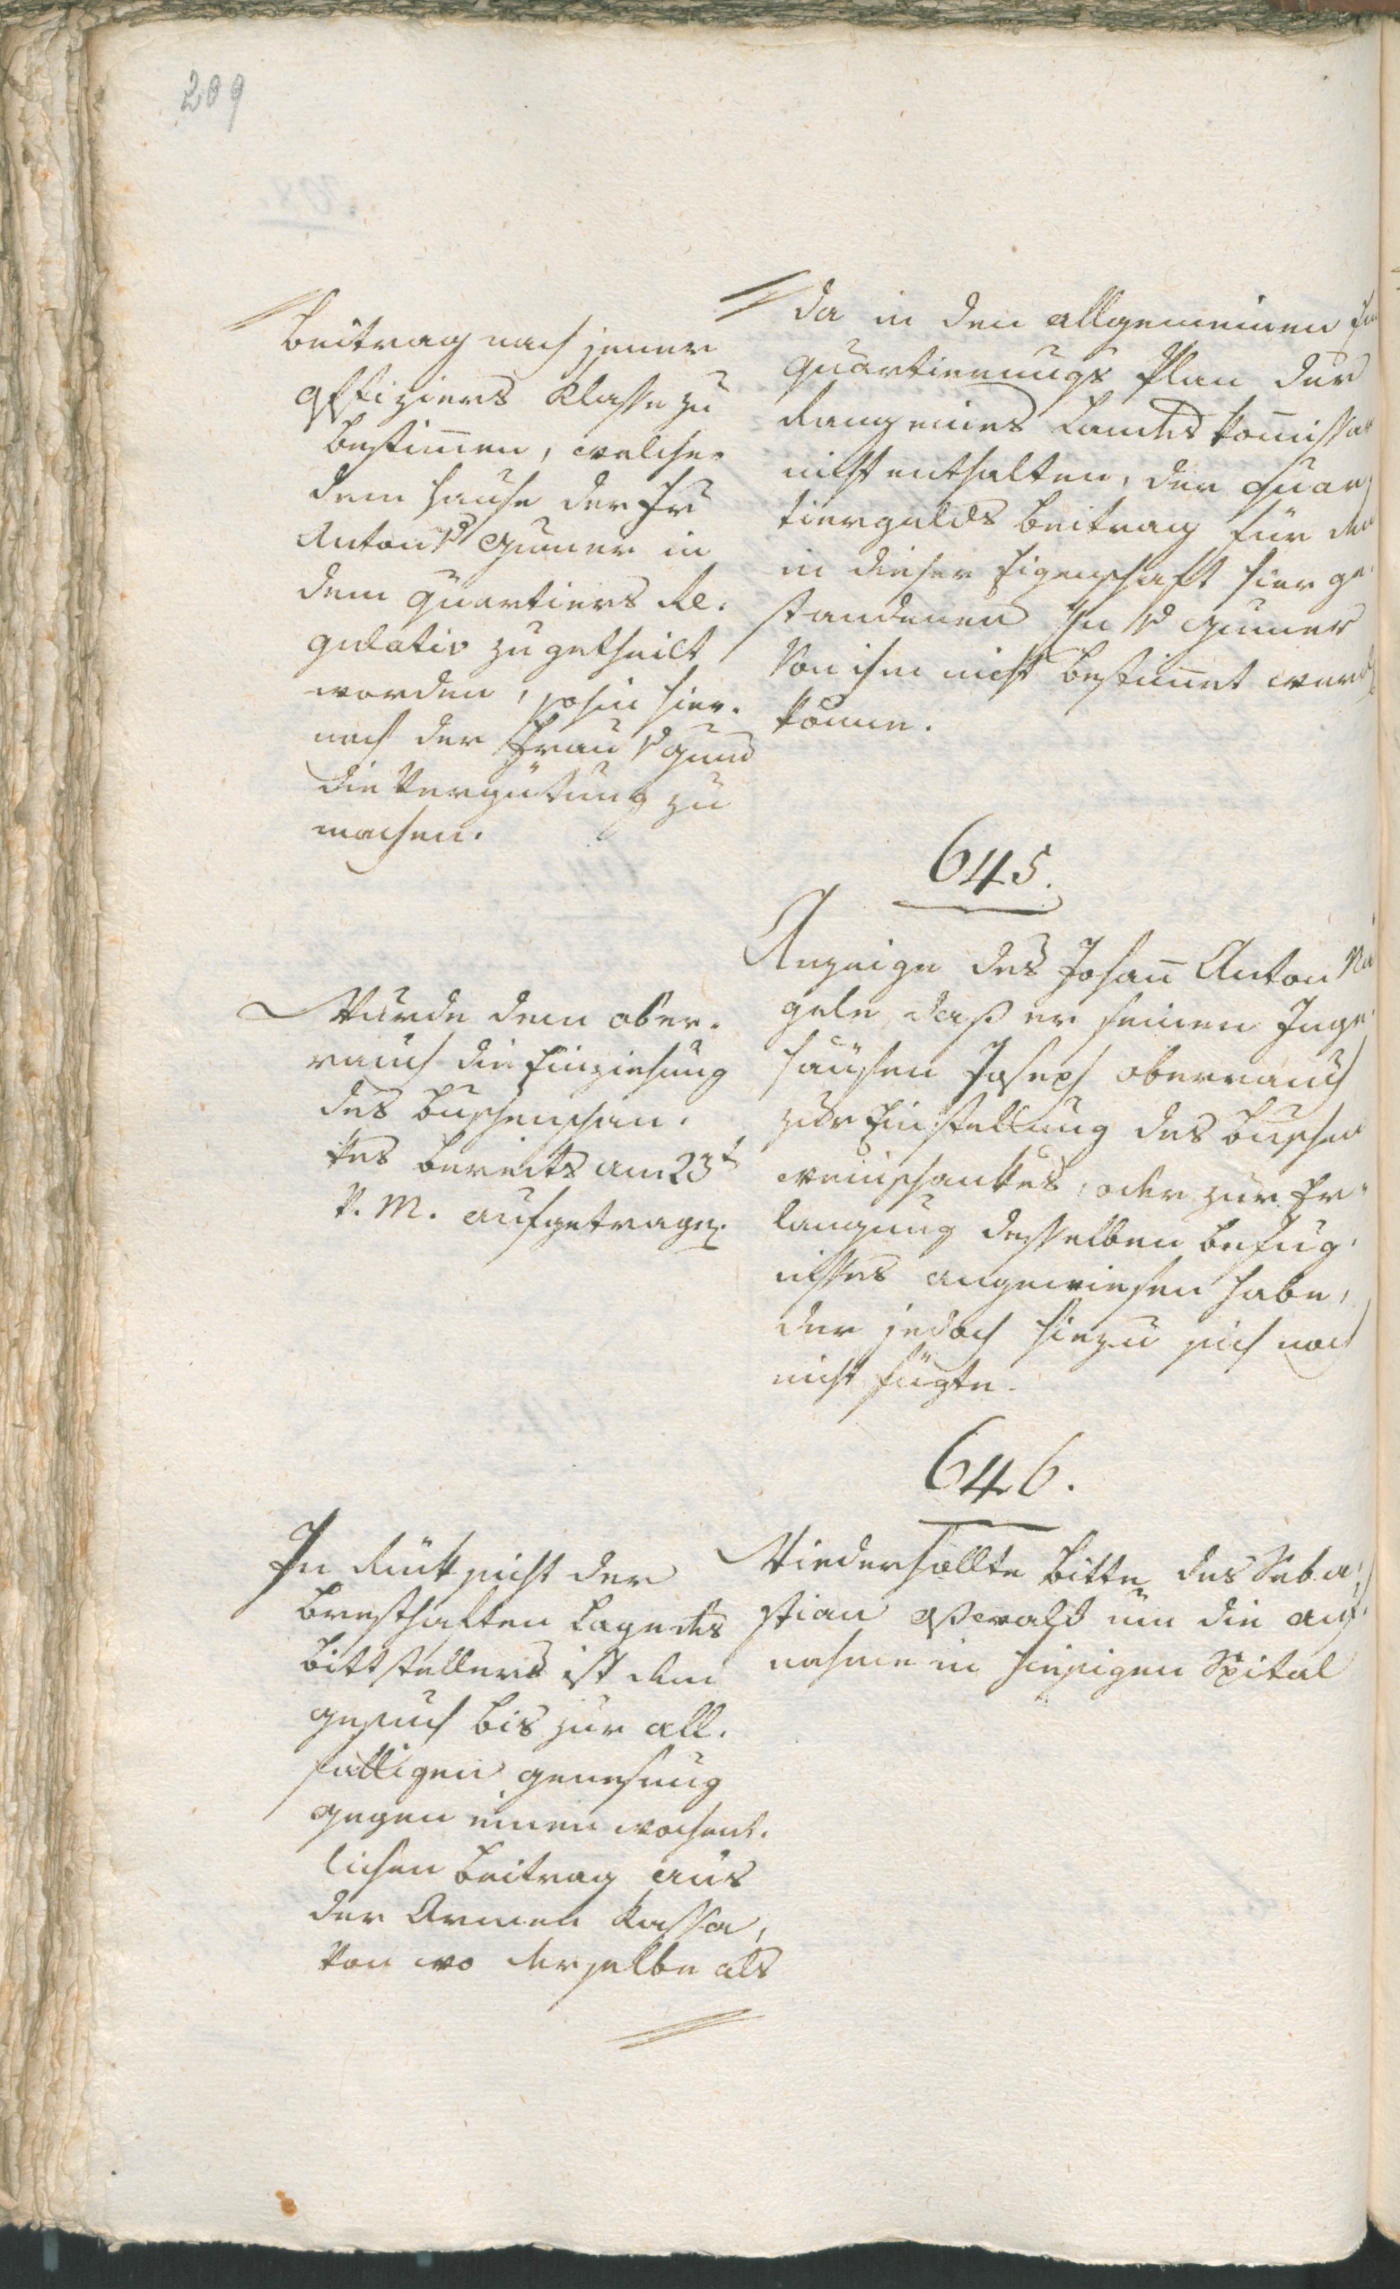 209
Beitrag nach jener
Offiziers Klasse zu
bestimmen, welche
dem Hause der Fr
Anton v Gumer in
dem Quartiers Re-
gulativ zu getheilt
worden, sohin hier-
nach der Frau v Gumer
die Vergütung zu
machen.
da in den allgemeinen
quartierungs Plan der
Rang eines Landes Kommissar
nicht enthalten, der Quar-
tiergelds Beitrag für den
in dieser Eigenschaft hier ge-
standenen H v Gumer
von ihm nicht bestimmt werd
könne.
645.
Wurde dem Ober-
rauch die Einziehung
des Buschenschan-
kes bereits am 23t
v. M. aufgetragen.
Anzeige des Johann Anton Nä
gele, daß er seinen Inge-
häusen Joseph Oberrauch
zur Einstellung des Buschen
weinschankes, oder zur Er-
langung desselben Befug-
nisses angewiesen habe,
der jedoch hiezu sich noch
nicht fügte.
646.
In Rücksicht der
bresthaften Lage des
Bittstellers ist dem
Gesuch bis zur all-
fälligen Genesung
gegen einen wochent-
lichen Beitrag aus
der Armen Kassa,
von wo derselbe als
Wiederhollte Bitte des Seba-
stian Oßwald um die Auf-
nahme in hiesigen Spital